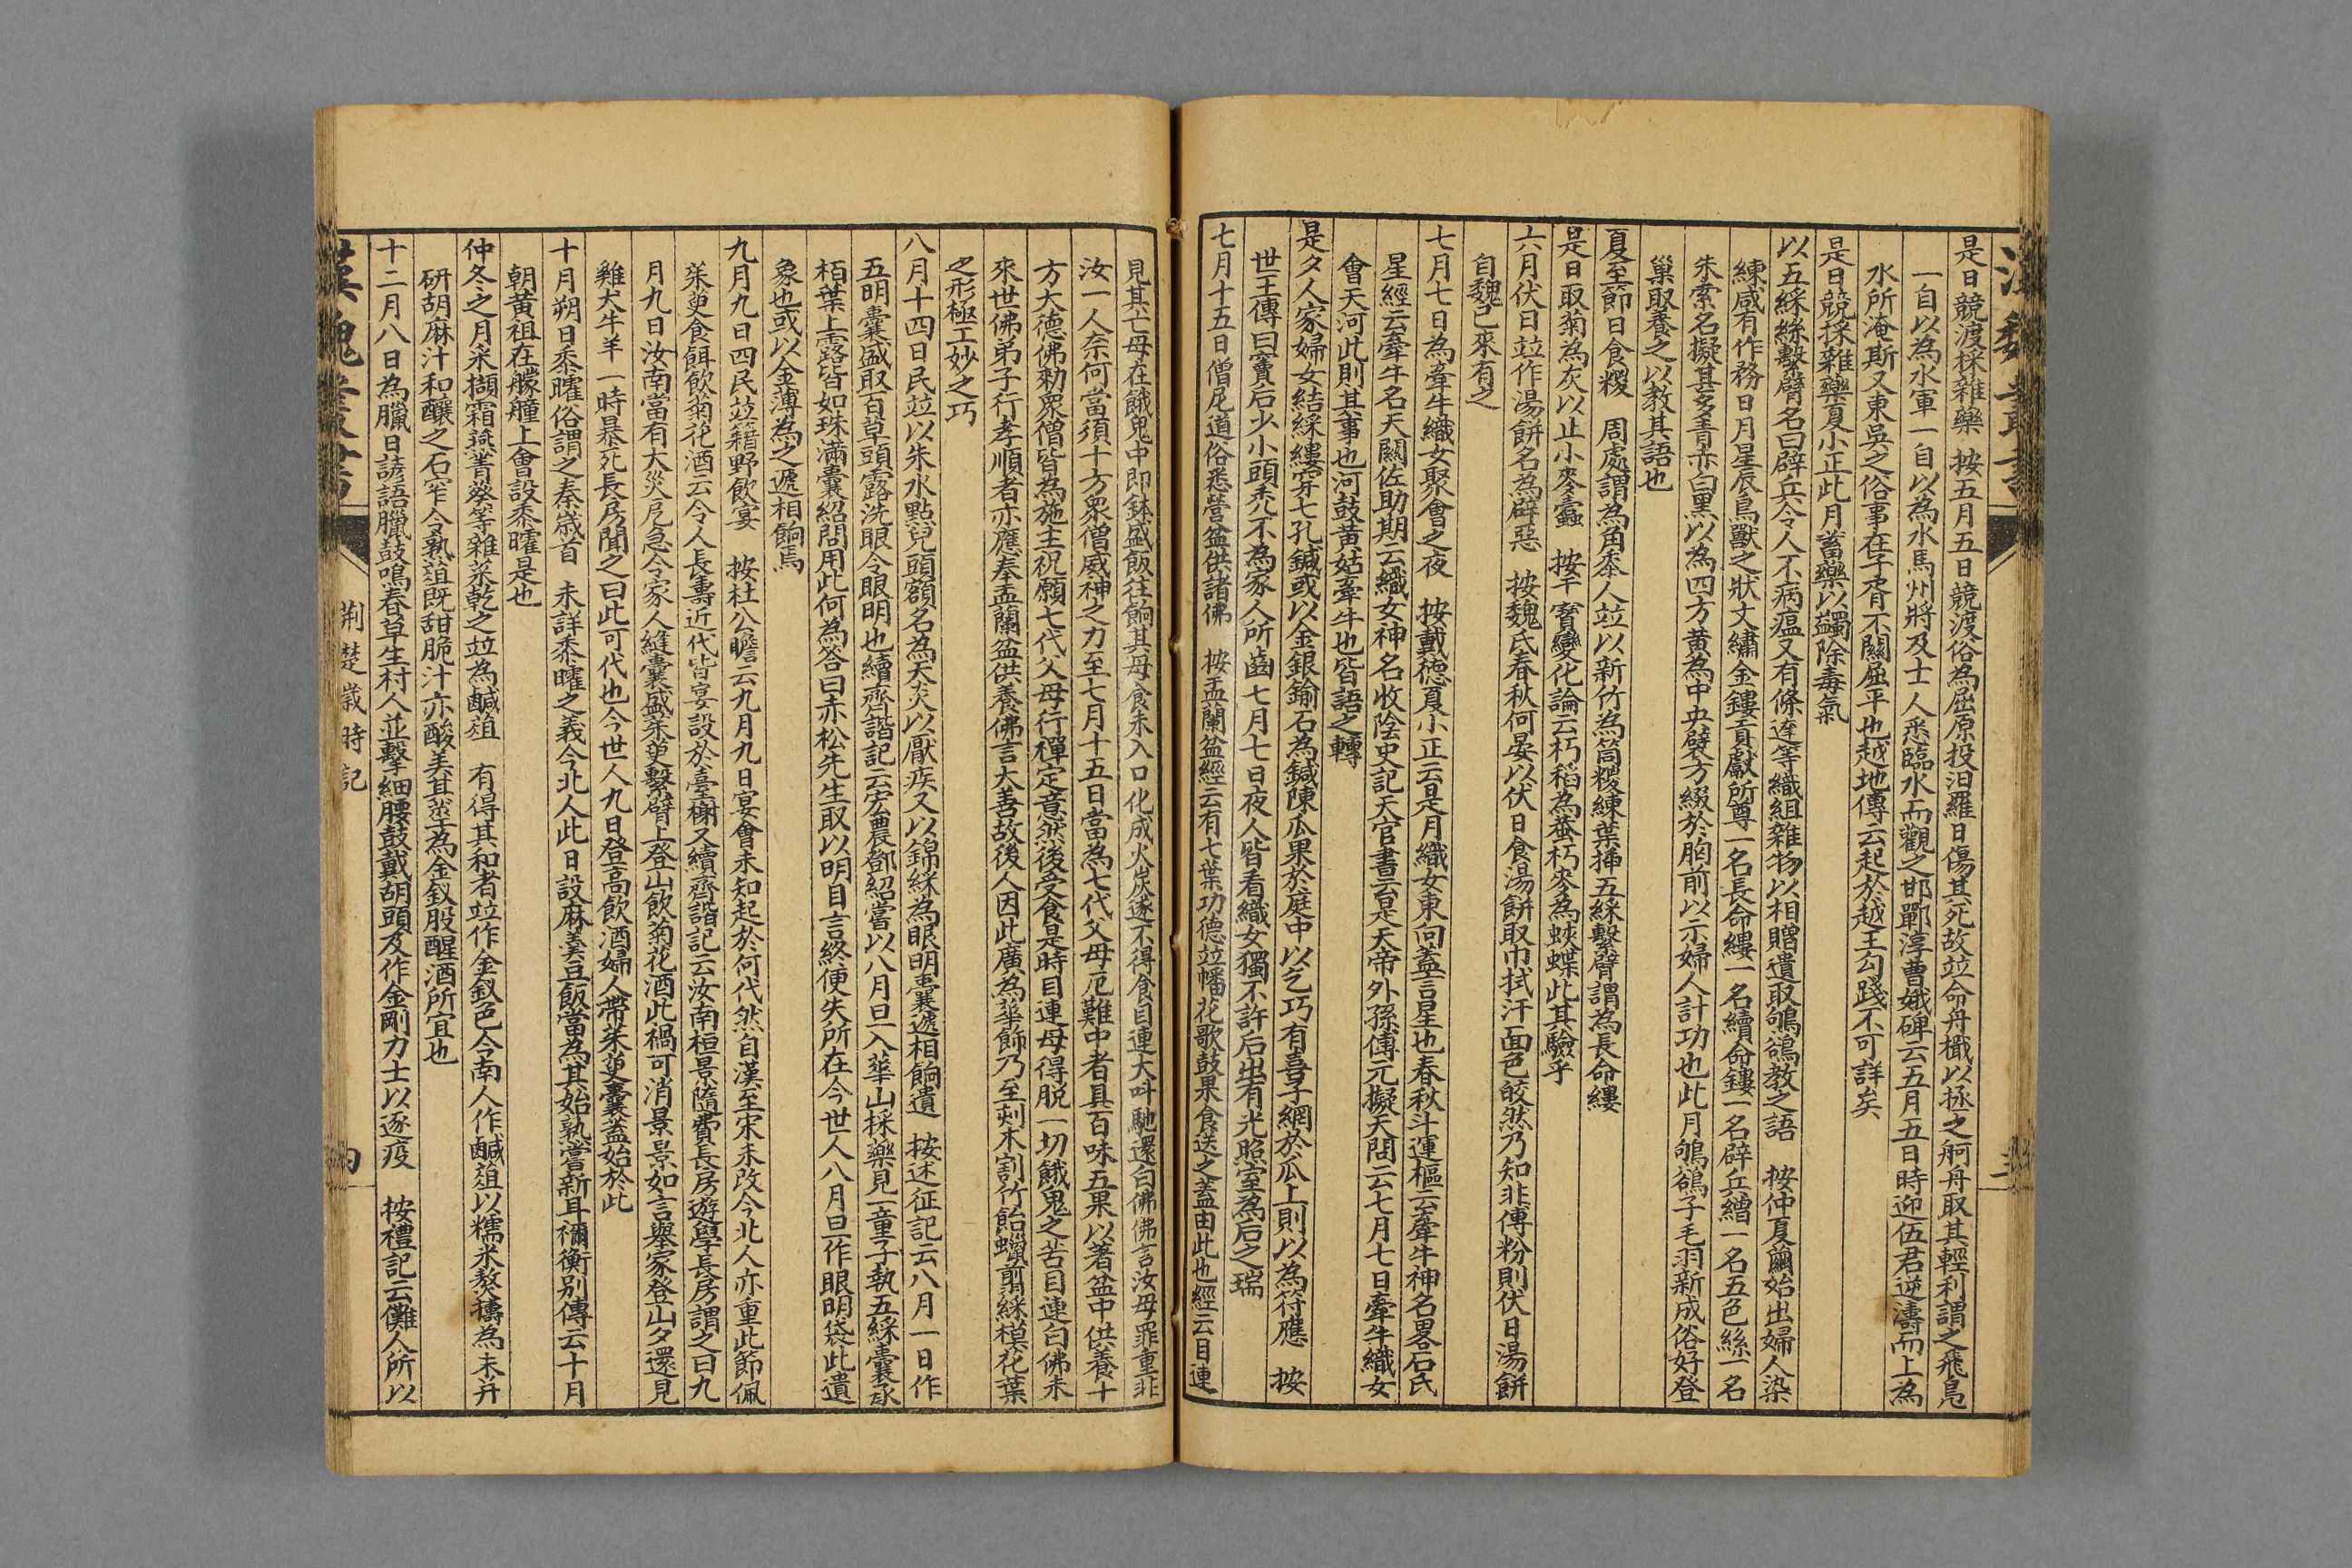 是日競渡採雜藥　按五月五日競渡俗為屈原投汨羅日傷其死故竝命舟檝以拯之舸舟取其輕利謂之飛鳧
一自以為水軍一自以為水馬州將及士人悉臨水而觀之邯鄲淳曹娥碑云五月五日時迎伍君逆濤而上為
水所淹斯又東吳之俗事在子胥不關屈平也越地傳云起於越王勾踐不可詳矣
是日競採雜藥夏小正此月蓄藥以蠲除毒氣
以五綵絲繫臂名曰辟兵令人不病瘟又有條達等織組雜物以相贈遺取鴝鵒教之語　按仲夏繭始出婦人染
練咸有作務日月星辰鳥獸之狀文繡金鏤貢獻所尊一名長命縷一名續命鏤一名辟兵繒一名五色絲一名
朱索名擬甚多青赤白黑以為四方黃為中央襞方綴於胸前以示婦人計功也此月鴝鵒子毛羽新成俗好登
巢取養之以教其語也
夏至節日食糉　周處謂為角黍人竝以新竹為筒糉練葉插五綵繫臂謂為長命縷
是日取菊為灰以止小麥蠹　按干寶變化論云朽稻為蛬朽麥為蛺蝶此其驗乎
六月伏日竝作湯餅名為辟惡　按魏氏春秋何晏以伏日食湯餅取巾拭汗面色皎然乃知非傅粉則伏日湯餅
自魏已來有之
七月七日為牽牛織女聚會之夜　按戴德夏小正云是月織女東向蓋言星也春秋斗運樞云牽牛神名畧石氏
星經云牽牛名天關佐助期云織女神名收陰史記天官書云是天帝外孫傅元擬天問云七月七日牽牛織女
會天河此則其事也河鼓黃姑牽牛也皆語之轉
是夕人家婦女結綵縷穿七孔鍼或以金銀鍮石為鍼陳瓜果於庭中以乞巧有喜子網於瓜上則以為符應　按
世王傳曰竇后少小頭禿不為家人所齒七月七日夜人皆看織女獨不許后出有光照室為后之瑞
七月十五日僧尼道俗悉營盆供諸佛　按盂蘭盆經云有七葉功德竝幡花歌鼓果食送之蓋由此也經云目連
見其亡母在餓鬼中即鉢盛飯往餉其母食未入口化成火炭遂不得食目連大呌馳還白佛佛言汝母罪重非
汝一人奈何當須十方眾僧威神之力至七月十五日當為七代父母厄難中者具百味五果以著盆中供養十
方大德佛勅眾僧皆為施主祝願七代父母行禪定意然後受食是時目連母得脫一切餓鬼之苦目連白佛未
來世佛弟子行孝順者亦應奉盂蘭盆供養佛言大善故後人因此廣為華飾乃至刻木割竹飴蠟剪綵模花葉
之形極工妙之巧
八月十四日民竝以朱水點兒頭額名為天灸以厭疾又以錦綵為眼明囊遞相餉遺　按述征記云八月一日作
五明囊盛取百草頭露洗眼令眼明也續齊諧記云宏農鄧紹嘗以八月旦入華山採藥見一童子執五綵囊承
栢葉上露皆如珠滿囊紹問用此何為答曰赤松先生取以明目言終便失所在今世人八月旦作眼明袋此遺
象也或以金薄為之遞相餉焉
九月九日四民竝籍野飲宴　按杜公瞻云九月九日宴會未知起於何代然自漢至宋未改今北人亦重此節佩
茱萸食餌飲菊花酒云令人長壽近代皆宴設於臺榭又續齊諧記云汝南桓景隨費長房遊學長房謂之曰九
月九日汝南當有大災厄急令家人縫囊盛茱萸繫臂上登山飲菊花酒此禍可消景如言舉家登山夕還見
雞犬牛羊一時暴死長房聞之曰此可代也今世人九日登高飲酒婦人帶茱萸囊蓋始於此
十月朔日黍臛俗謂之秦歲首　未詳黍臛之義今北人此日設麻羹豆飯當為其始熟嘗新耳禰衡別傳云十月
朝黃祖在艨艟上會設黍臛是也
仲冬之月采擷霜蕪菁葵等雜菜乾之竝為鹹葅　有得其和者竝作金釵色今南人作鹹葅以糯米熬擣為末并
研胡麻汁和釀之石窄令熟葅既甜脆汁亦酸美其莖為金釵股醒酒所宜也
十二月八日為臘日諺語臘鼓鳴春草生村人並擊細腰鼓戴胡頭及作金剛力士以逐疫　按禮記云儺人所以
漢魏叢書
荆楚歲時記